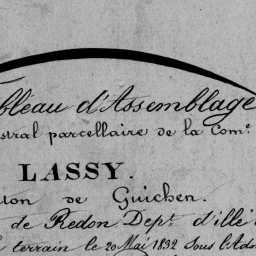 bleau d'Assemblage
stral parcellaire de la Com.
LASSY.
ton de Guichen.
de Redon Dept. d'ille
terrain le 20 Mai 1832 Sous l'Adm